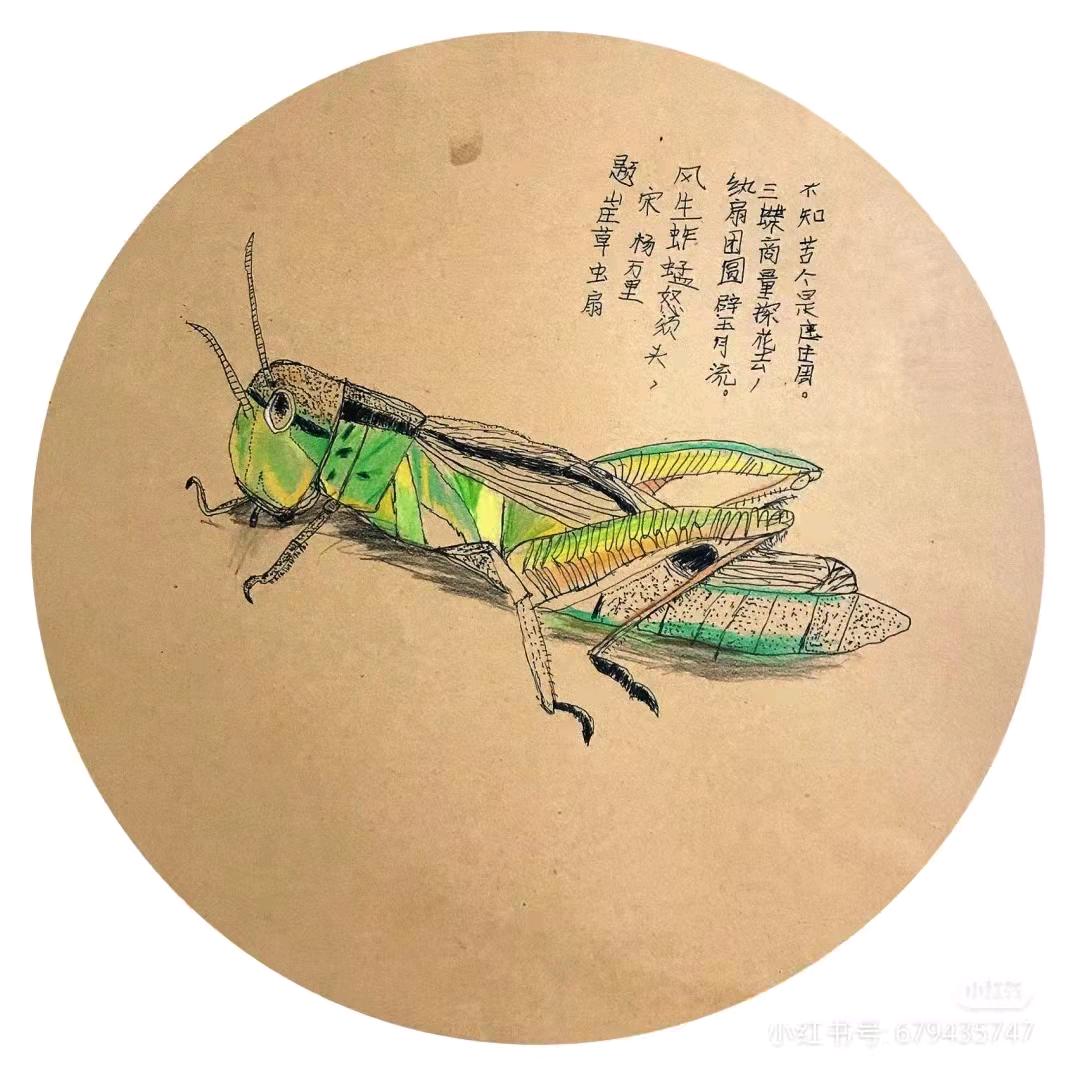 题山庄草虫扇
宋 杨万里
风生蚱蜢怒须头,
纨扇团圆璧月流。
三蝶商量探花去,
不知苦个是庄周。
小红书
小红书号 679435747